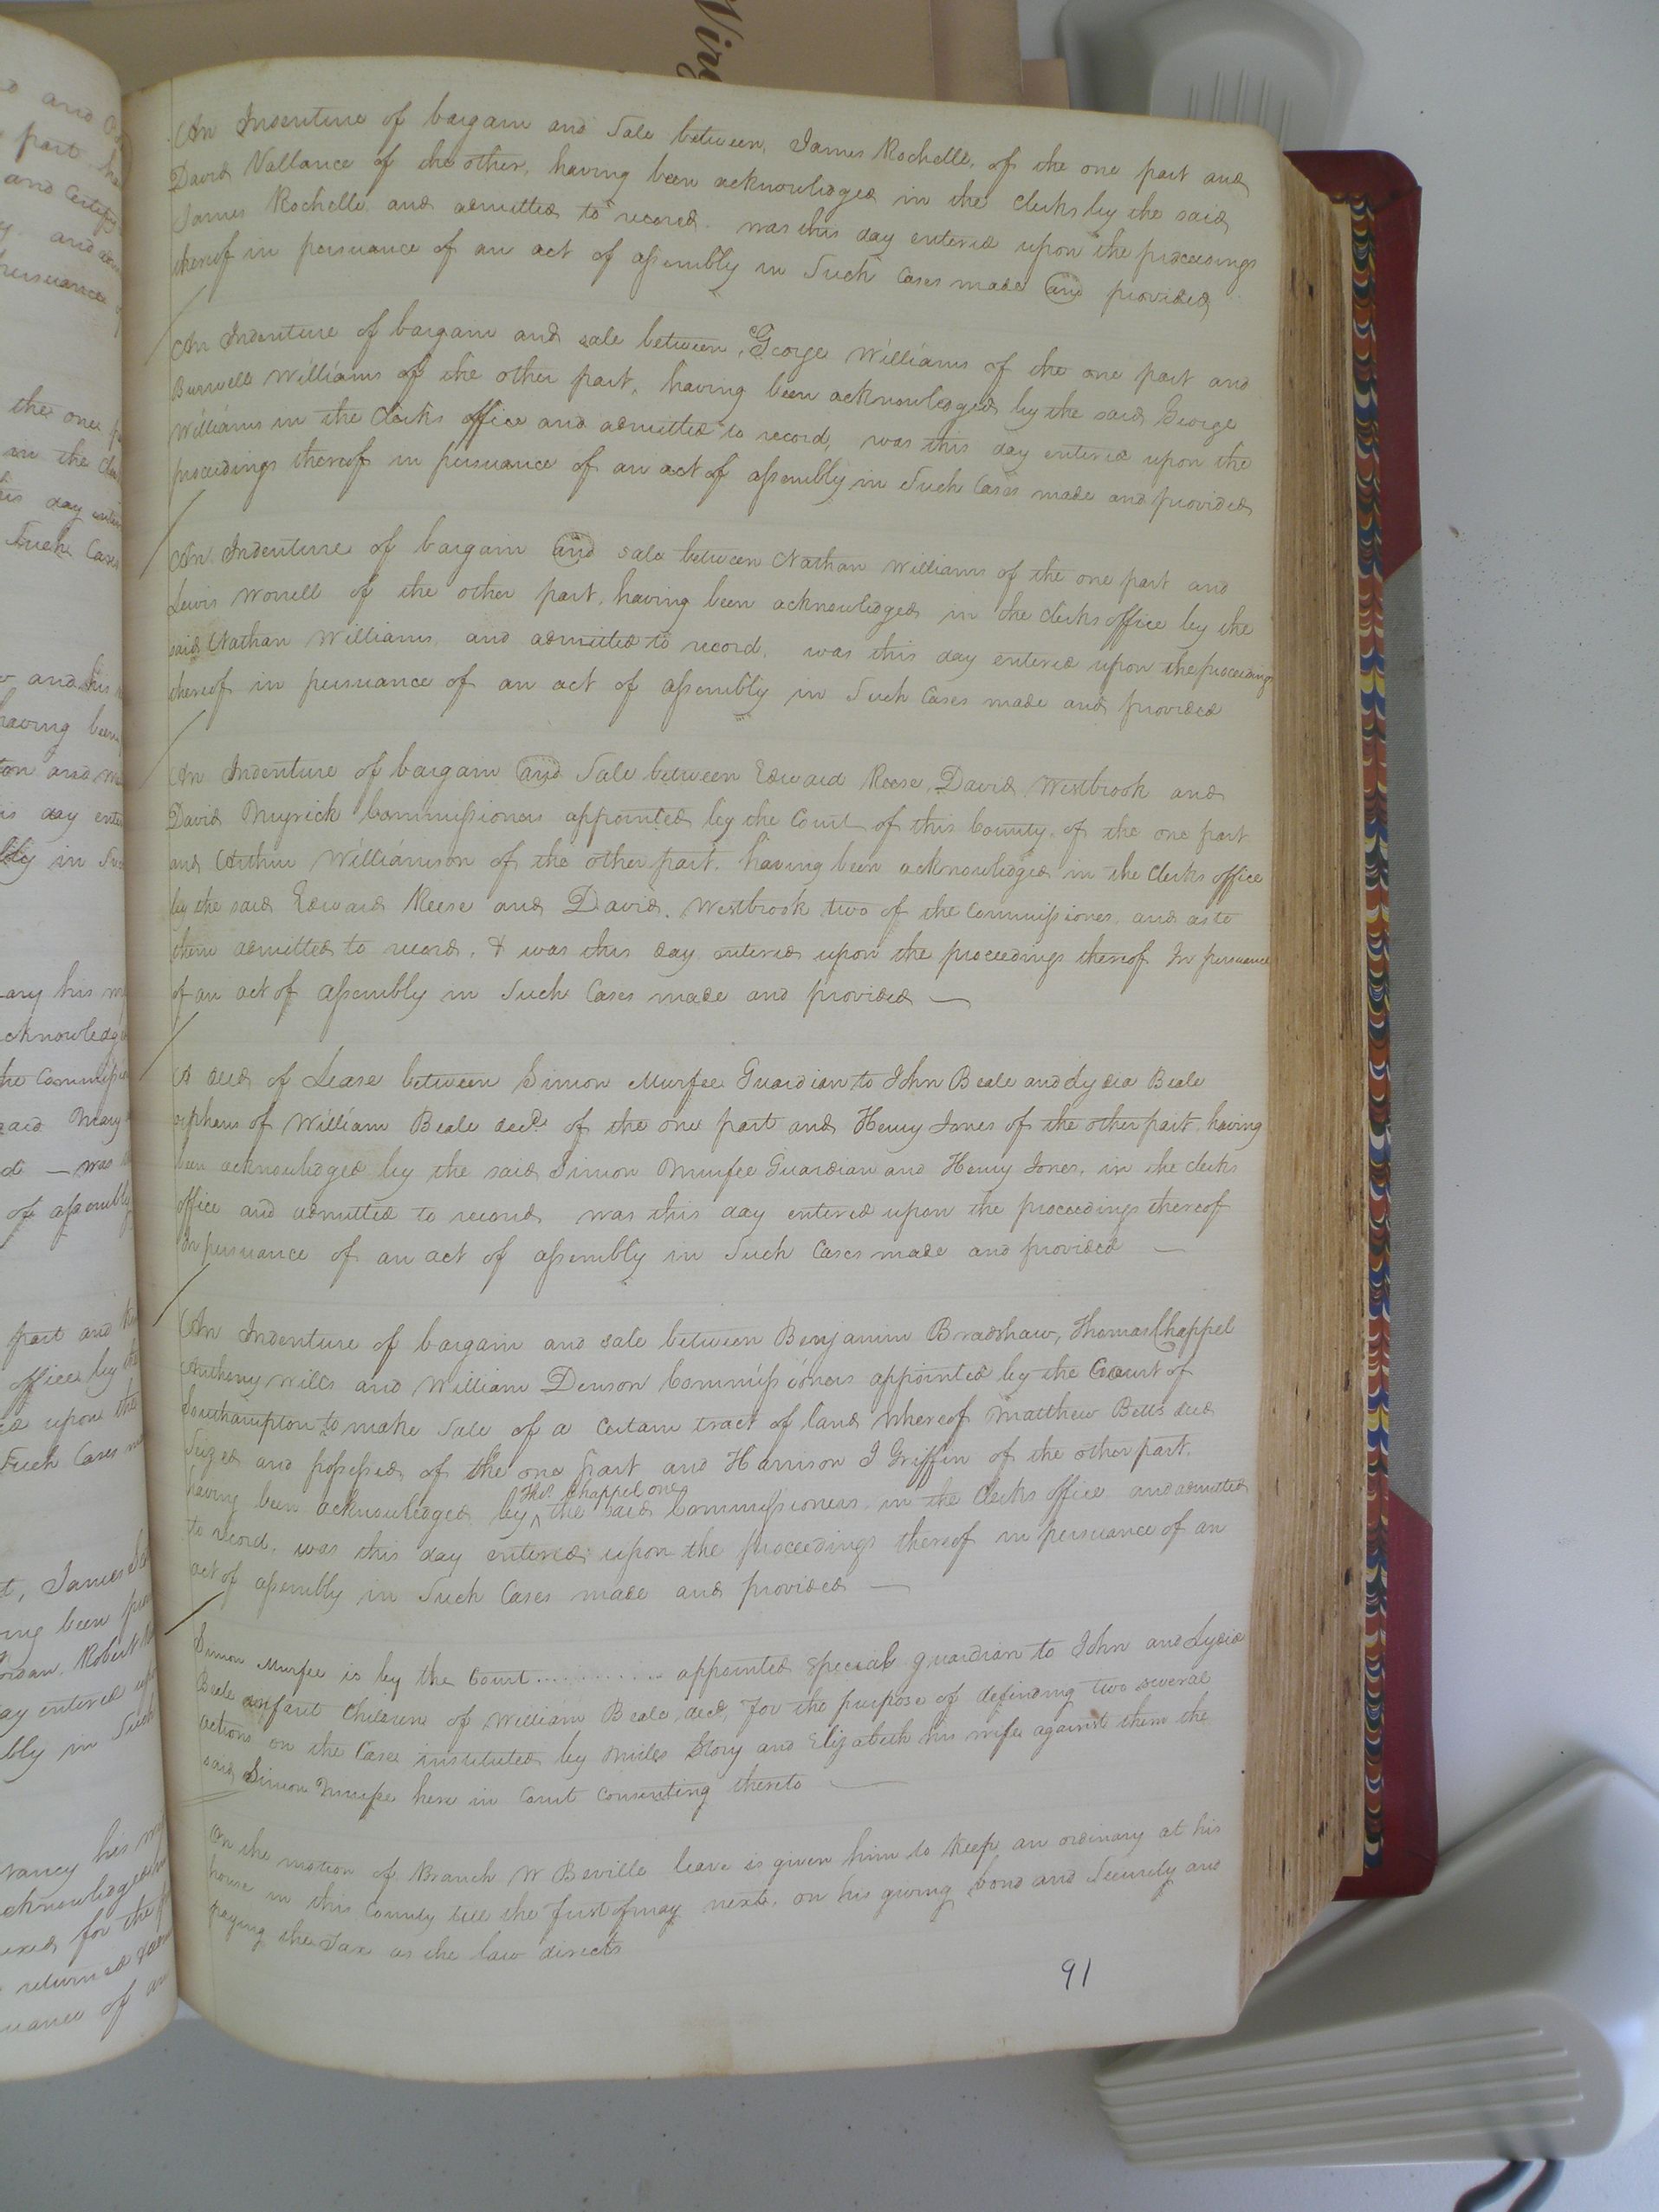 Virg
An Indenture of bargain and Sale between, James Rochelle, of the one part and
David Vallance of the other, having been acknowledged in the clerks by the said
James Rochelle and admitted to record. was this day entered upon the proceedings
thereof in persuance of an act of assembly in Such Cases made and provided
An Indenture of bargain and sale between, George Williams of the one part and
Burwell Williams of the other part, having been acknowledged by the said George
Williams in the Clerks office and admitted to record, was this day entered upon the
proceedings thereof in persuance of an act of assembly in Such Cases made and provided
An Indenture of bargain and sale between Nathan Williams of the one part and
Lewis Worrell of the other part, having been acknowledged in the clerks office by the
said Nathan Williams, and admitted to record, was this day entered upon the proceedings
thereof in persuance of an act of assembly in Such Cases made and provided
An Indenture of bargain and Sale between Edward Reese, David Westbrook and
David Myrick Commissioners appointed by the Court of this County, of the one part
and Arthur Williamson of the other part. having been acknowledged in the Clerks office
by the said Edward Reese and David, Westbrook two of the Commissiones, and as to
them admitted to record, & was this day entered upon the proceedings thereof In persuance
of an act of assembly in Such Cases made and provided —
A deed of Lease between Simon Murfee Guardian to John Beale and Lydia Beale
orphans of William Beale decd. of the one part and Henry Jones of the other part, having
been acknowledged by the said Simon Murfee Guardian and Henry Jones, in the clerks
office and admitted to record was this day entered upon the proceedings thereof
In persuance of an act of assembly in Such Cases made and provided —
An Indenture of bargain and sale between Benjamin Bradshaw, Thomas Chappel
Anthony Wills and William Denson Commissioners appointed by the Court of
Southampton to make Sale of a Certain tract of land whereof Matthew Betts decd
Seized and possessed of the one part and Harrison J Griffin of the other part.
having been acknowledged by ^ Thos. Chappel one the said Commissioners in the Clerks office and admitted
to record, was this day entered upon the proceedings thereof in persuance of an
act of assembly in Such Cases made and provided —
Simon Murfee is by the Court ............ appointed Special guardian to John and Lydia
Beale infant Children of William Beale, decd, for the purpose of defending two several
actions on the Case instituted by Miles Story and Elizabeth his wife against them the
said Simon Murfee here in Court Consenting thereto —
On the motion of Branch W Beville leave is given him to Keep an ordinary at his
house in this County till the first of may next, on his giving bond and Security and
paying the Tax as the law directs
91